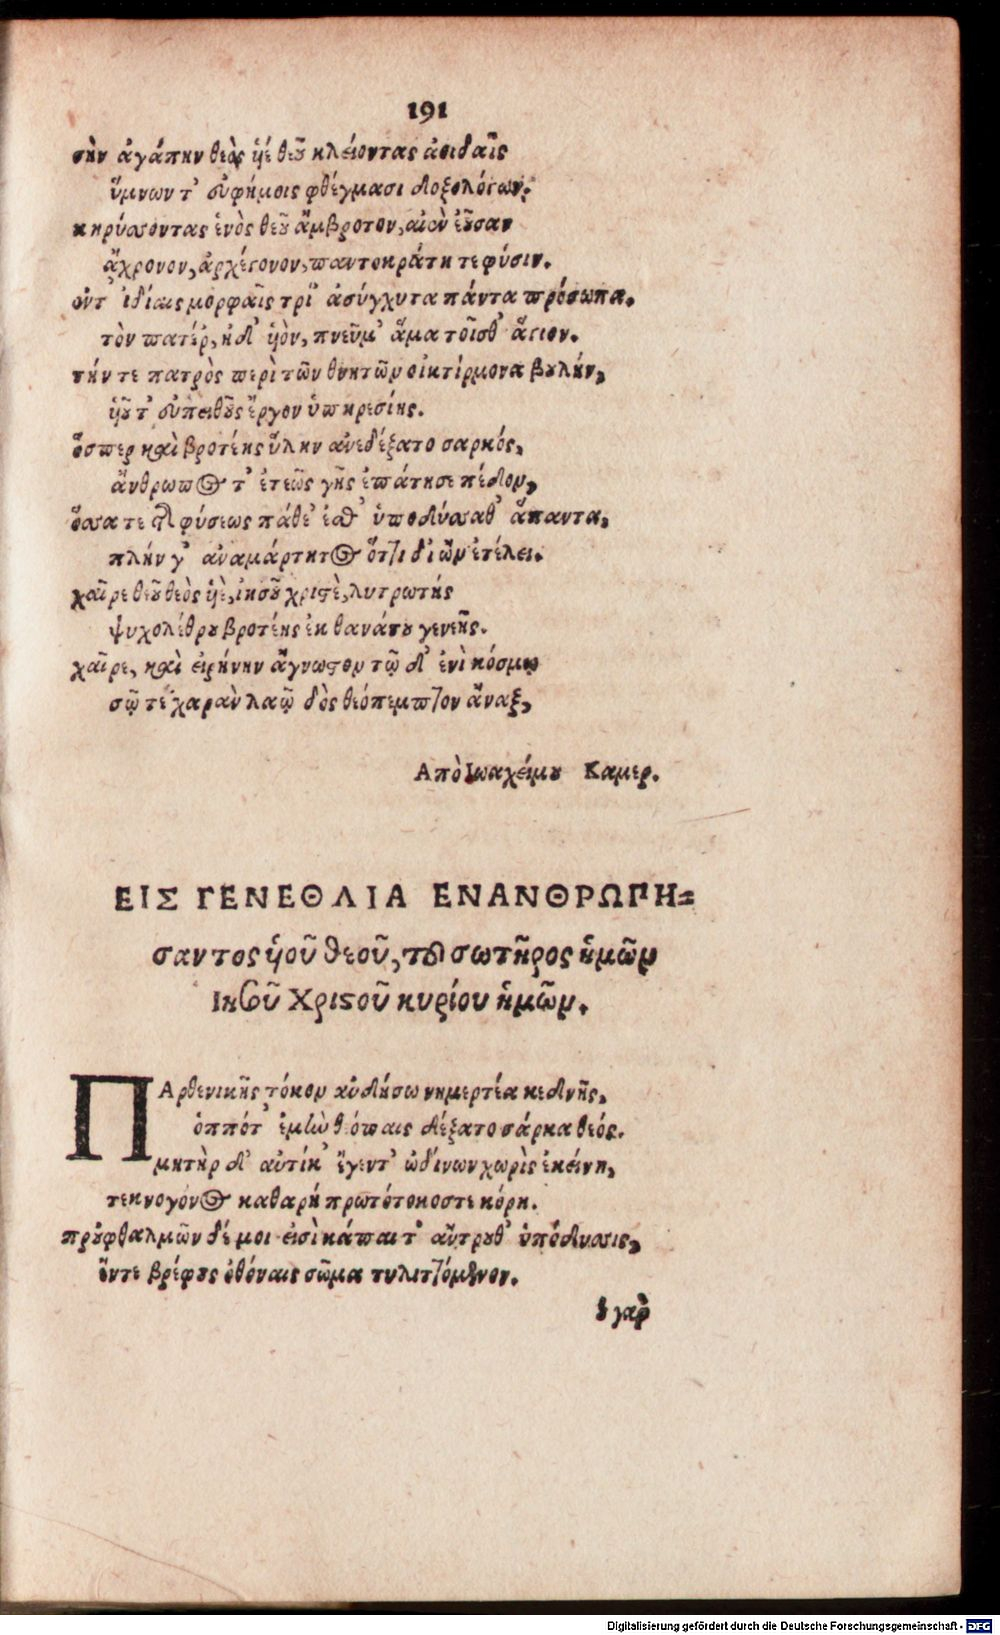 191
σὴν ἀγάπην θεὸς ὑιέ θεοῦ κλείοντας ἀοιδαῖς
ὕμνων τ' εὐφήμοις φθέγμασι δοξολόγων.
κηρύσσοντας ἑνὸς θεοῦ ἄμβροτον, αἰὲν ἐοῦσαν
ἄχρονον, ἀρχέγονον, παντοκράτη τε φύσιν.
ὀντ' ἰδίαις μορφαῖς τρί' ἀσύγχυτα πάντα πρόσωπα.
τὸν πατέρ, ηδ' ὑιὸν, πνεῦμ' ἅμα τοῖσθ' ἅγιον.
τήν τε πατρὸς περὶ τῶν θνητῶν οἰκτίρμονα βουλήν,
ὑιοῦ τ' εὐπειθοῦς ἔργον ὑπηρεσίης.
ὅσπερ καὶ βροτέης ὕλην ἀνεδέξατο σαρκός,
ἄνθρωπος τ' ἐτεῶς γῆς ἐπάτησε πέδον,
ὅσσα τε τῆς φύσεως πάθε' ἐσθ' ὑποδύσσαθ' ἅπαντα,
πλήν γ' ἀναμάρτητος ὅττι διῶν ἐτέλει.
χαῖρε θεοῦ θεὸς ὑιὲ, ἰησοῦ χριστὲ, λυτρωτής
ψυχολέθρου βροτέης ἐκ θανάτου γενεῆς.
χαῖρε, καὶ εἰρήνην ἄγνωστον τῷ δ' ἐνὶ κόσμῳ
σῷ τε χαρὰν λαῷ δὸς θεόπεμπτον ἄναξ,
Απὸ Ιωαχείμου Καμερ.
ΕΙΣ ΓΕΝΕΘΛΙΑ ΕΝΑΝΘΡΩΠΗ=
σαντος ὑιοῦ θεοῦ, τοῦ σωτῆρος ἡμῶν
Ιησοῦ Χριστοῦ κυρίου ἡμῶν.
ΠΑρθενικῆς τόκον αὐδήσω νημερτέα κεδνῆς,
ὁππότ' ἐμὴν θ' ὅπαις δέξατο σάρκα θεός.
μητὴρ δ' αὐτίκ' ἔγεντ' ὠδίνων χωρὶς ἐκείνη,
τεκνογόνος καθαρή πρωτότοκος τε κόρη.
προὐφθαλμῶν δέ μοι εἰσὶ κάπαι τ' αὔτρουθ' ὑπόδυσσις,
ἔντε βρέφους ὀθόναις σῶμα τυλιττόμενον.
οὐ γαρ
Digitalisierung gefördert durch die Deutsche Forschungsgemeinschaft - DFG